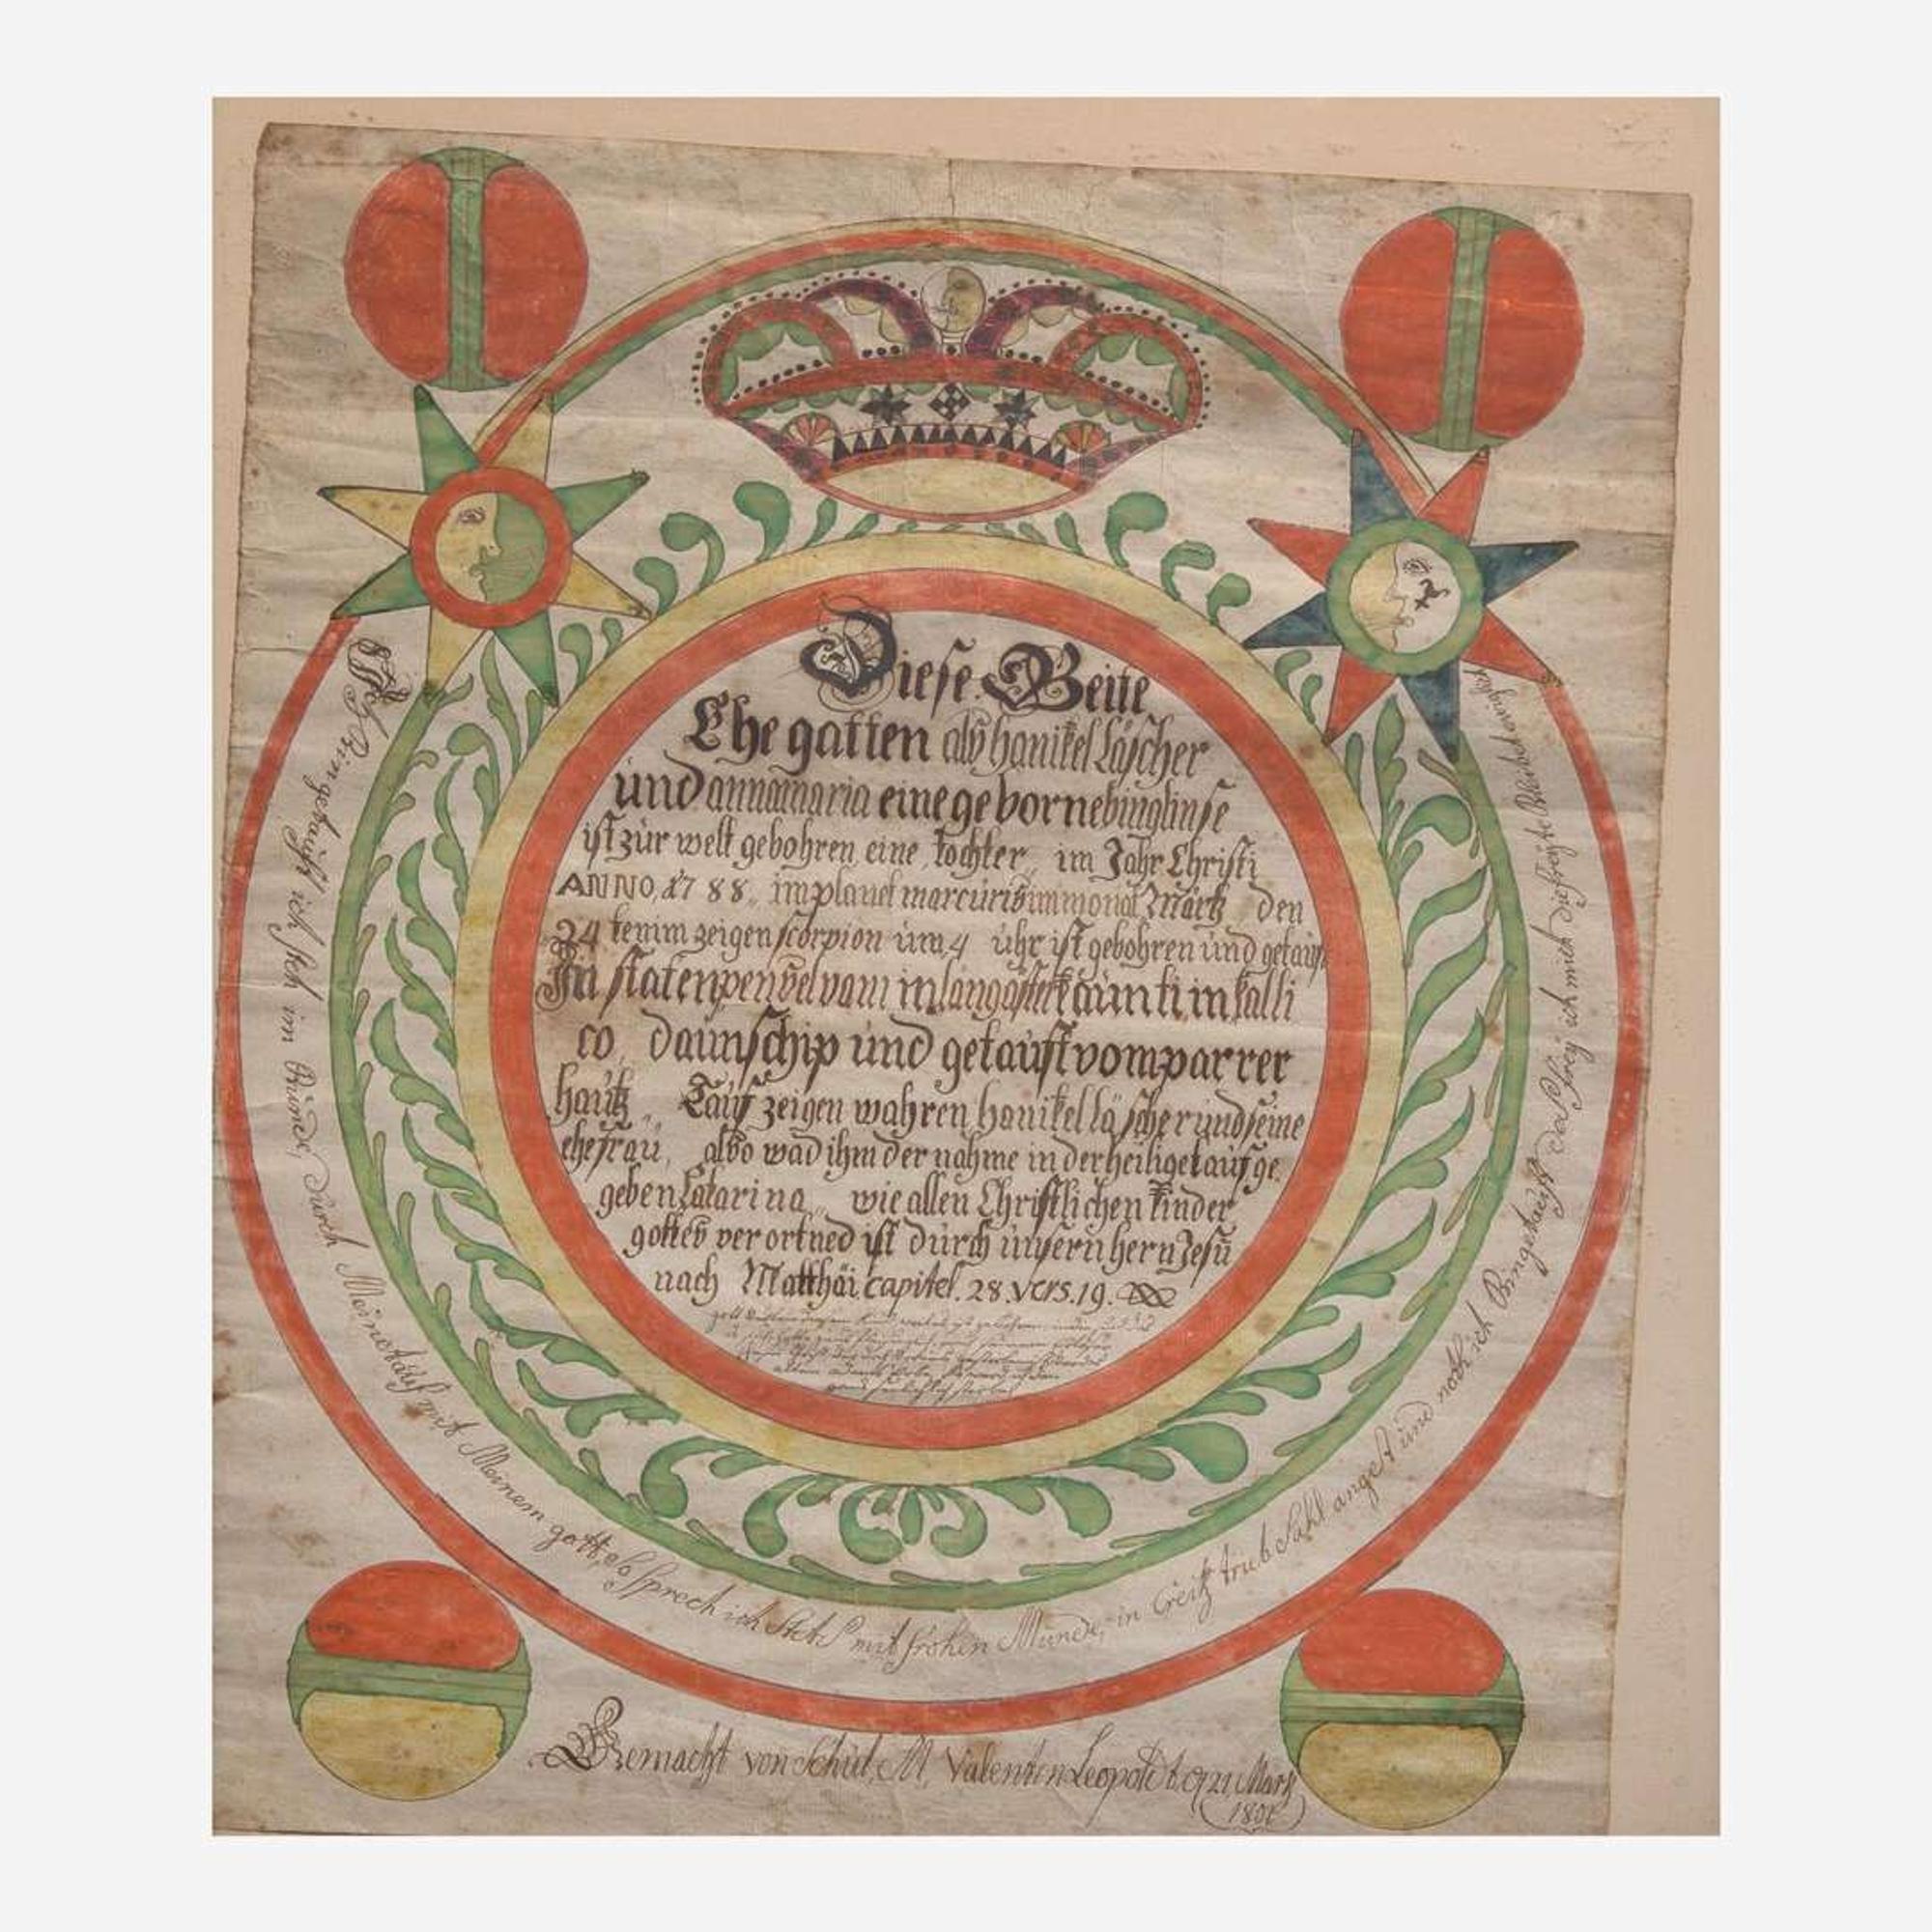 Diese Beite
Ehe gatten als hanikel Läscher
und annamaria eine gebornebinglinse
ist zur welt gebohren eine tochter im Jahr Christi
ANNO, 1788, im planet marcuris im monat Märtz den
24 tenim zeigen scorpion um 4 uhr ist gebohren und getauft
In staten penselvani in langaster caunti in kalli
co daunschip und getauft vom parrer
hautz Tauf zeigen wahren hanikel läscher und seine
ehefrau, also wad ihm der nahme in der heilige tauf ge
geben Catarina wie allen Christlichen kinder
gottes verortned ist durch unsern hern Jesu
nach Matthäi capitel. 28. vers. 19.
Ich Bin getaufft ich steh im Bunde, durch Meine tauf mit Meinem gott, so Sprech ich stets mit frohen Munde, in Creitz trub Sahl angest und noth ich Bin getaufft das frey ich mich die freyte Bleibet ewiglich
Gemacht von Schul. M. Valentin Leopold t, 21 Martz
1801